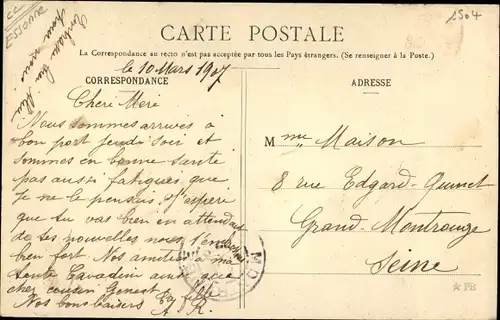 ESSONNE
1504
CARTE POSTALE
La Correspondance au recto n'est pas acceptée par tous les Pays étrangers. (Se renseigner à la Poste.)
le 10 Mars 1907
CORRESPONDANCE
ADRESSE
Cheré Meré
Nous sommes arrivés à
bon port jeudi soir et
sommes en bonne santé
pas aussi fatigués que
je ne le pensais. J'espère
que tu vas bien en attendant
de tes nouvelles nous t'embrassons
bien fort Nos amitiés à ma
tante Cavadin ainsi que
chez cousin Genest
Nos bons baisers Ta fille
A R.
Mme Maison
8 rue Edgard-Quinet
Grand-Montrouge
Seine
PB